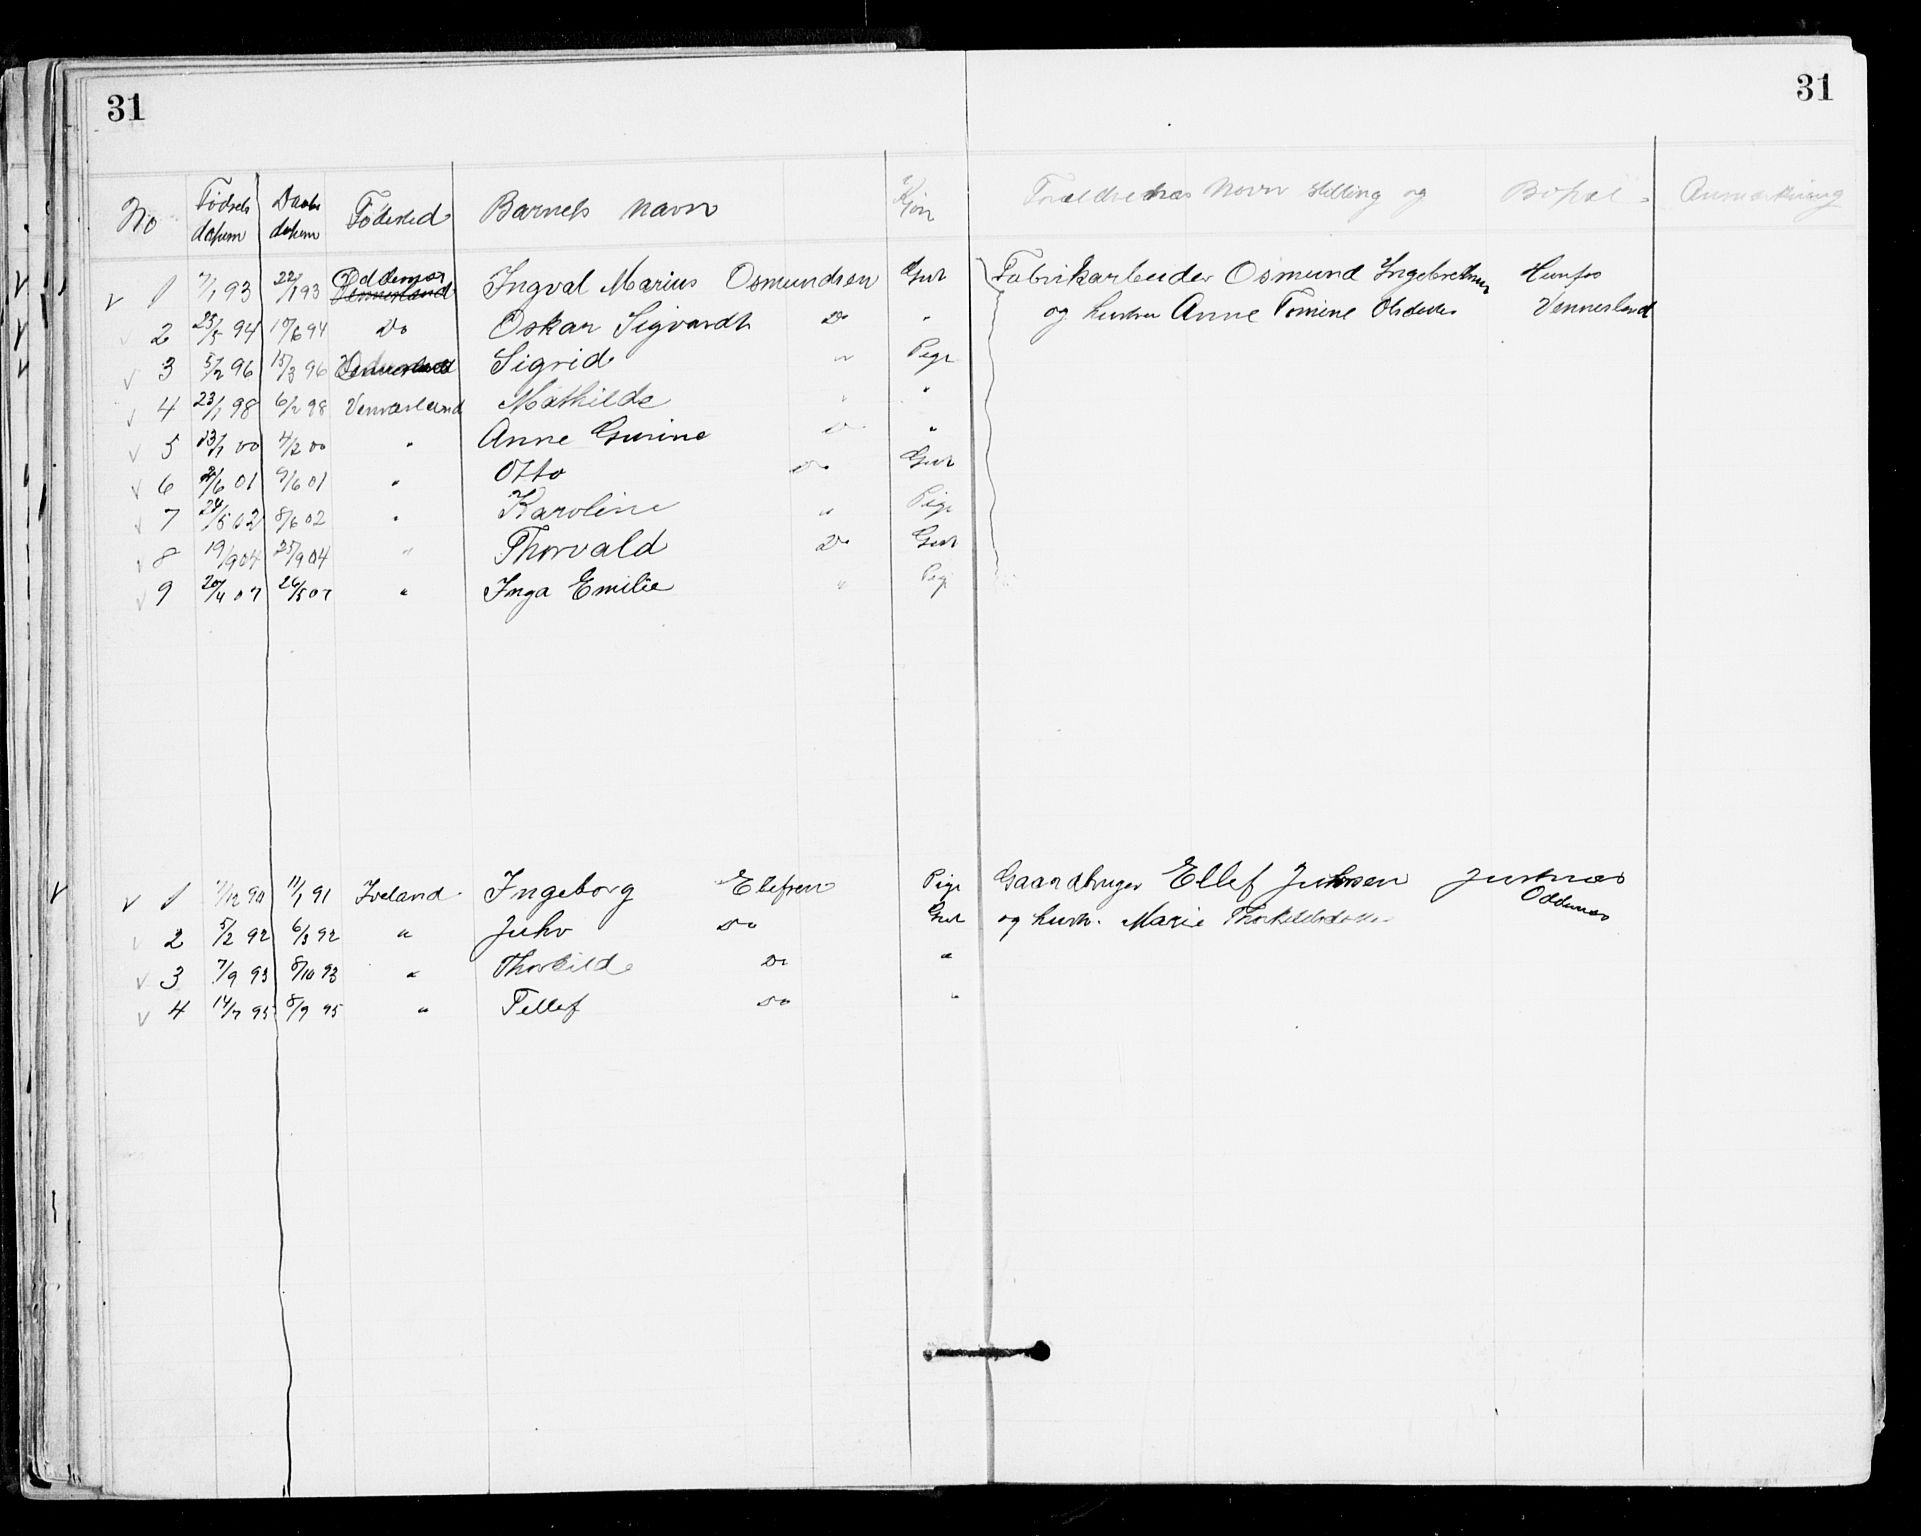 31 31
No Fødsels datum Daabs datum Fødested Barnets Navn Kjøn Forældrenes Navn Stilling og Bopæl Anmærkning
1 7/1 93 22/1 93 Oddernæs Vennesland Ingval Marius Osmundsen Gut Fabrikarbeider Osmund Ingebretsen Hunfos
2 25/5 94 17/6 94 Do Oskar Sigvardt Do " og hustru Anne Tomine Olsdatter Vennesland
3 5/2 96 15/3 96 Sigrid " Pige
4 23/1 98 6/2 98 Vennesland Mathilde " "
5 13/1 00 4/2 00 " Anne Gurine Do "
6 2/6 01 9/6 01 " Otto Do Gut
7 24/5 02 8/6 02 " Karoline " Pige
8 19/9 04 25/9 04 " Thorvald Do Gut
9 20/4 07 26/5 07 " Inga Emilie " Pige
1 7/12 90 11/1 91 Iveland Ingeborg Ellefsen Pige Gaardbruger Ellef Juhsen Justnæs
Oddernæs
2 5/2 92 6/3 92 " Juho Do Gut og hustr. Marie Thorkildsdatter
3 7/9 93 8/10 93 " Thorkild Do "
4 14/7 95 8/9 95 " Tellef Do "